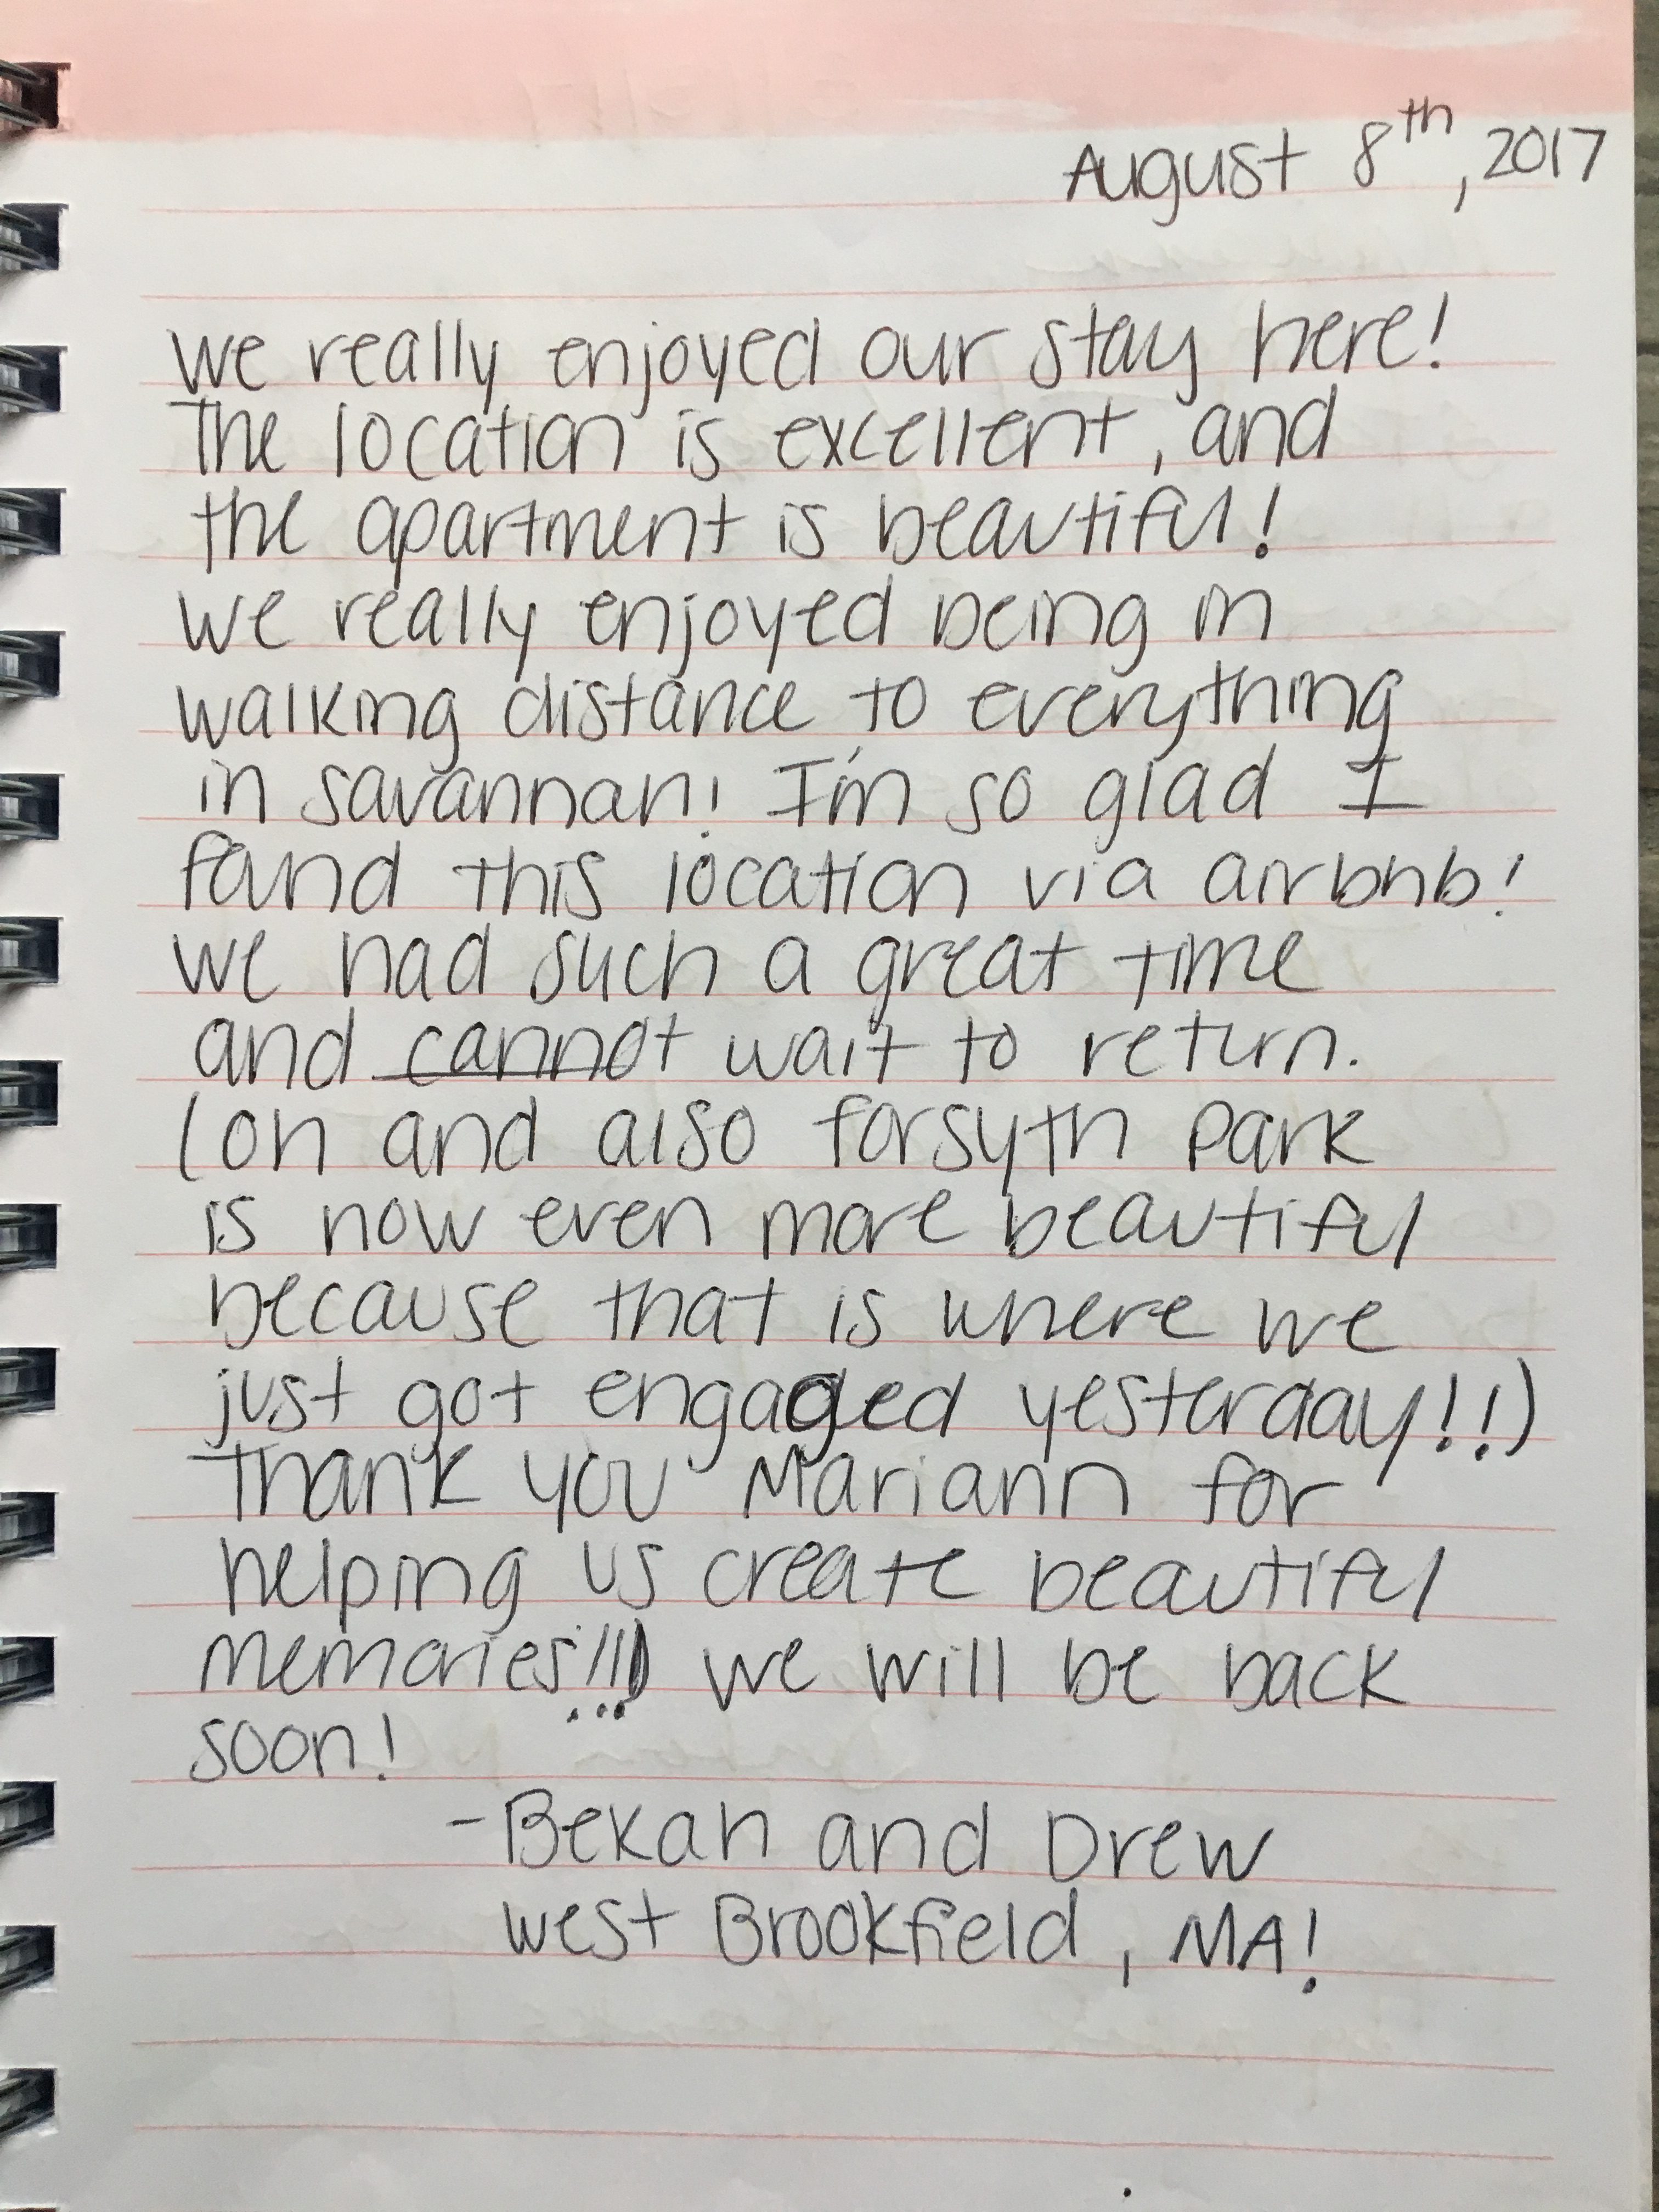 August 8th, 2017
We really enjoyed our stay here!
The location is excellent, and
the apartment is beautiful!
We really enjoyed being in
walking distance to everything
in Savannah! I'm so glad I
found this location via airbnb!
We had such a great time
and cannot wait to return.
(Oh and also Forsyth Park
is now even more beautiful
because that is where we
just got engaged yesterday!!)
Thank you Mariann for
helping us create beautiful
memories!!! We will be back
soon!
-Bekah and Drew
West Brookfield, MA!